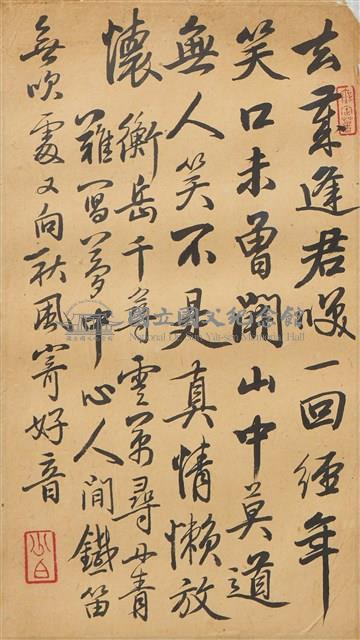 去歲逢君咲一回經年
笑口未曾開山中莫道
無人笑不是真情懶放
懷衡岳千尋雲萬尋丹青
難寫夢中心人間鐵笛
無吹處又向秋風寄好音
少白
國立國父紀念館
National Dr. Sun Yat-sen Memorial Hall